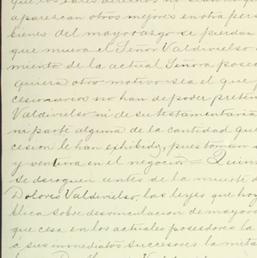 aparezcan otros mejores en otra pers
bienes del mayorazgo se pierdan
que muera el Señor Valdivielso
miento de la actual Señora posee
quiera otro motivo sea el que
cesionarios no han de poder preten
Valdivielso ni de su testamentaria
ni parte alguna de la cantidad que
cesion le han exhibido, pues toman
y ventura en el negocio = Quin
se deroguen antes de la muerte d
Dolores Valdivielso, las leyes que hoy
blica sobre desvinculacion de mayora
que cesa en los actuales poseedores la
a sus inmediatos succesores la mita